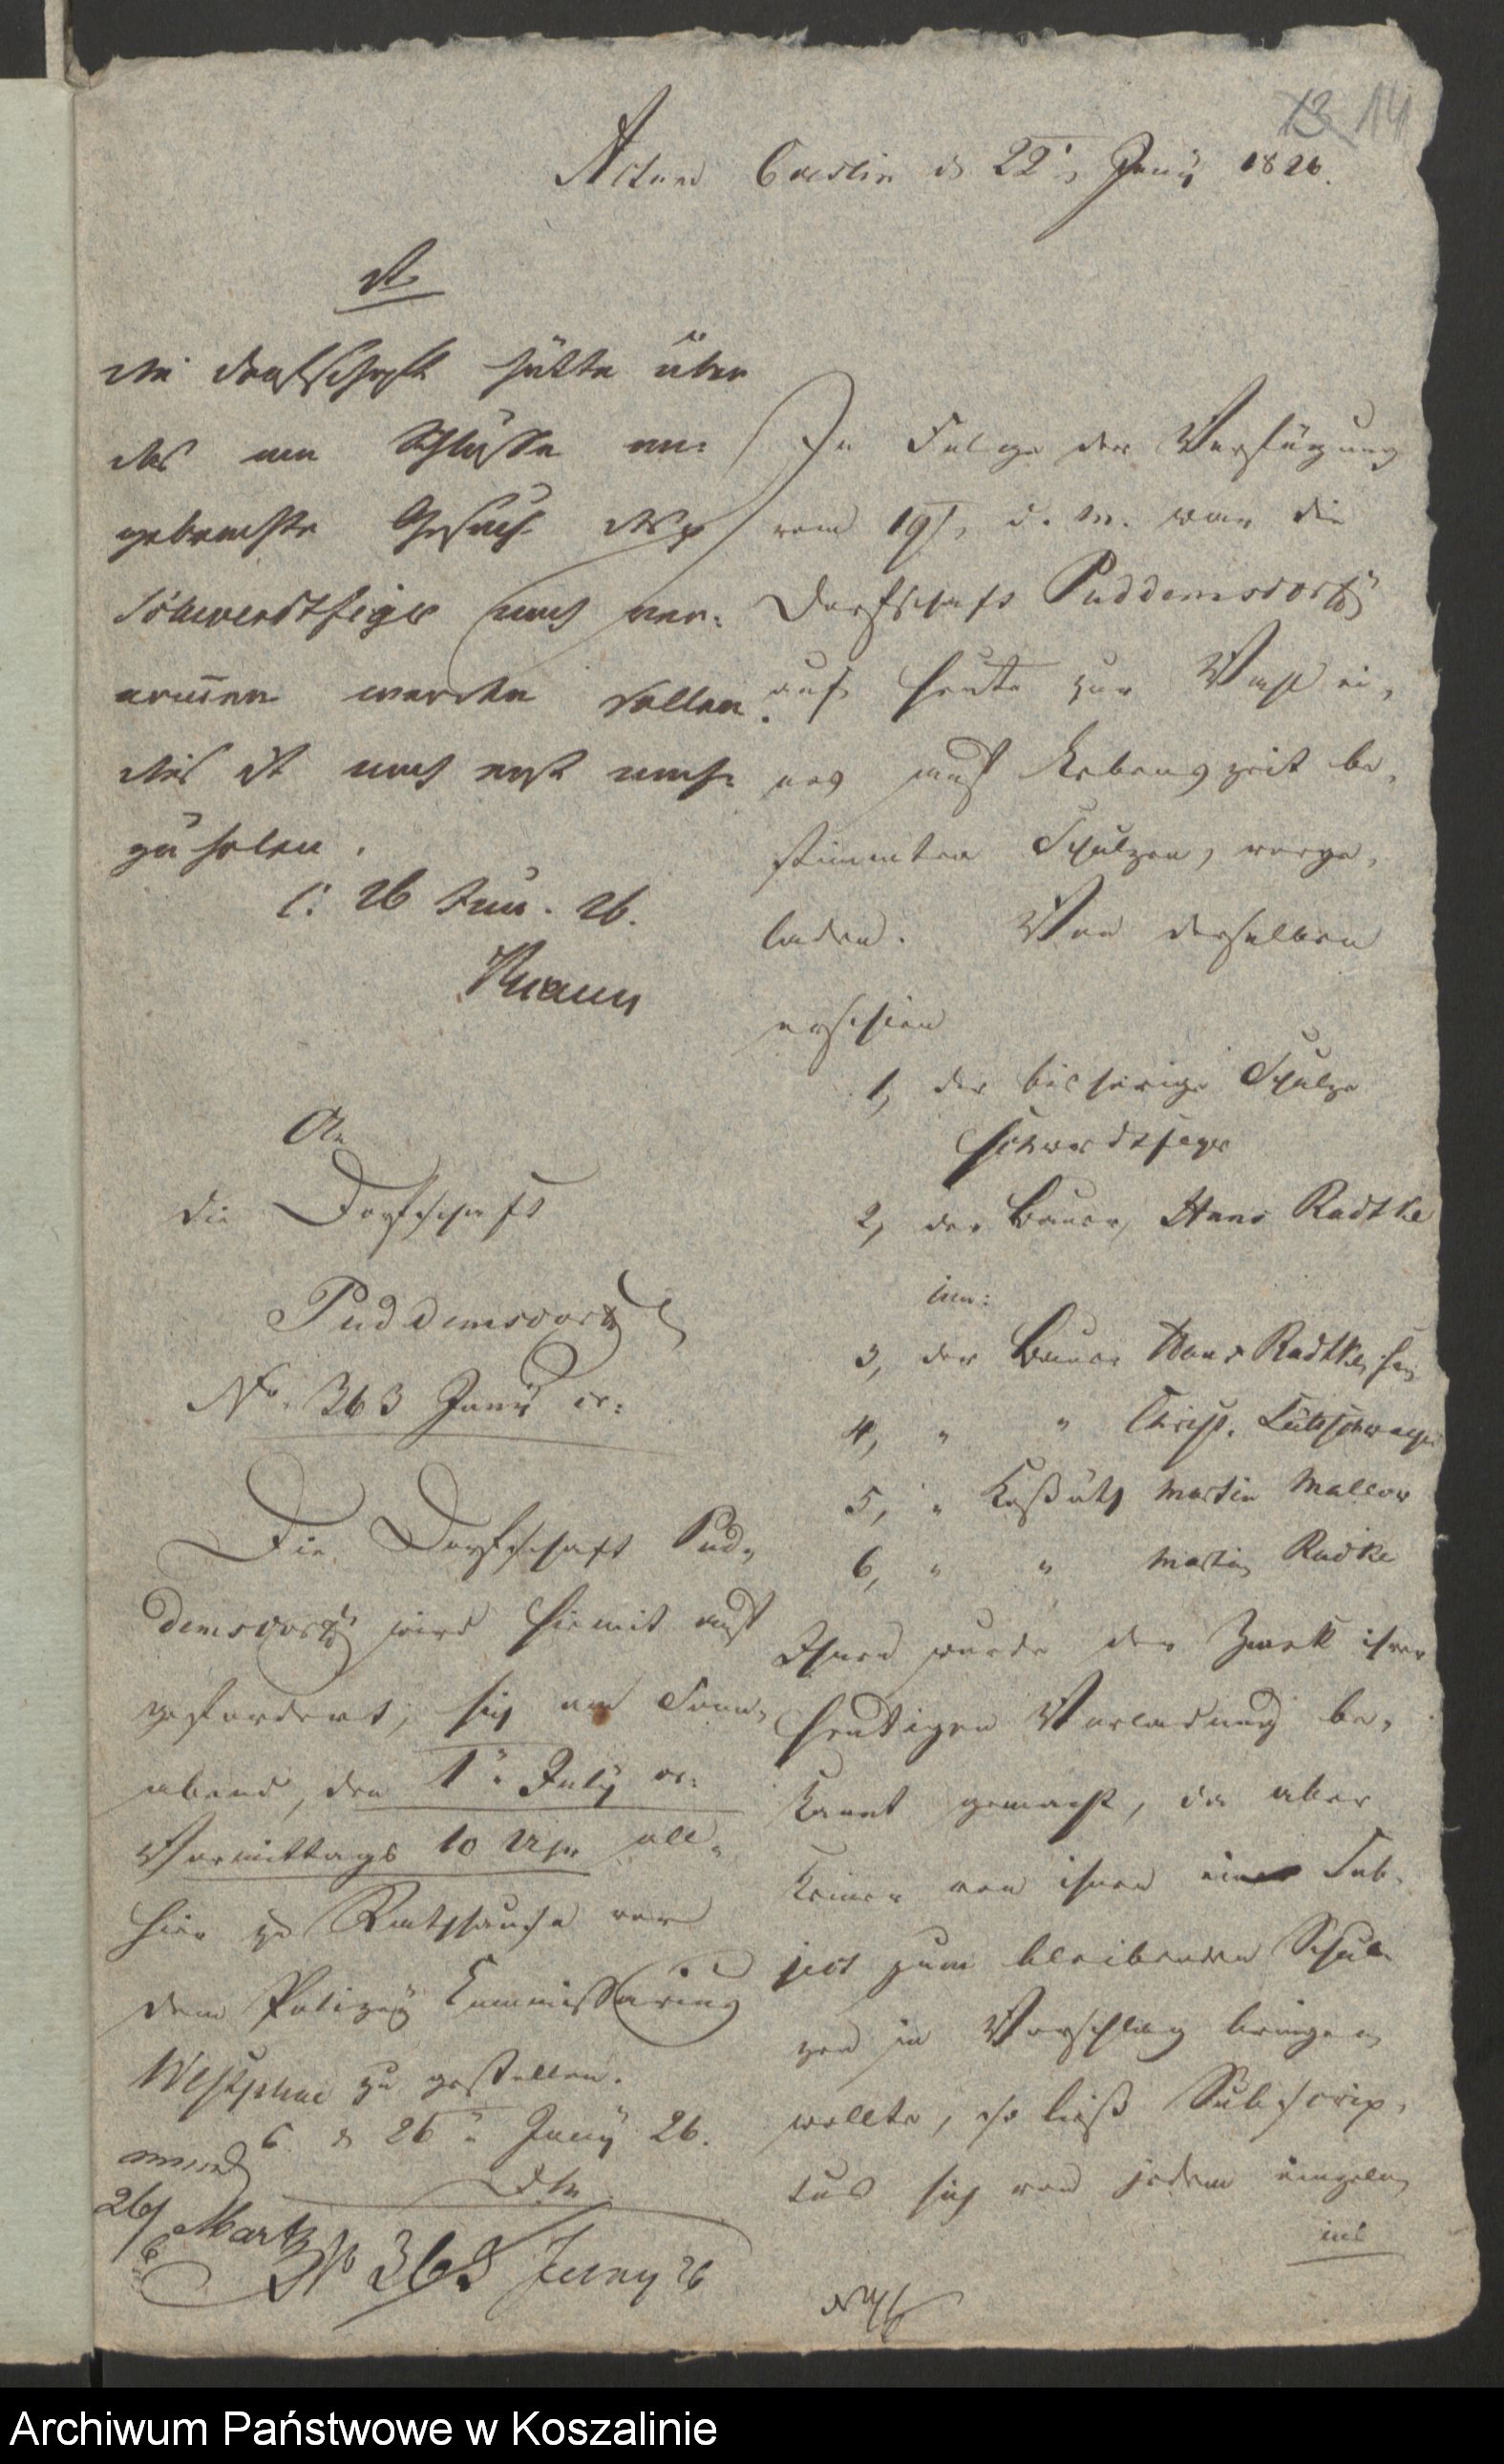 13 14
Actum Coeslin d 22t Juny 1826.
die Dorfschaft hätte über
das am Schlusse an:
gebrachte Gesuch des p
Schwerdtfeger noch ver:
nommen werden sollen.
dies ist noch erst nach:
zu holen.
C. 26 Jun. 26.
Braun
An
die Dorfschaft
Puddemsdorff
No. 363 Juny cr:
Die Dorfschaft Pud,
demsdorff wird hiemit auf
gefordert, sich am Sonn,
abend, den 1t July cr:
Vormittags 10 Uhr all,
hier zu Rathhause vor
dem Polizey Commissarius
Westphal zu gestellen.
C. d 26t Juny 26.
26/6 Martz
No 363 Juny 26
In Folge der Verfügung
vom 19t, d. M. war die
Dorfschaft Puddemsdorff
auf heute zur Wahl ei,
nes auf Lebenszeit be,
stimmten Schulzen, vorge,
laden. Von derselben
erschien
1, der bisherige Schulze
Schwerdtfeger
2, der Bauer, Hans Radtke
jun:
3, der Bauer Hans Radtke, sen
4, " " Christ. Lütschwager
5, " Kossäth Martin Mallow
6, " " Martin Radke
Ihnen wurde der Zweck ihrer
heutigen Vorladung be,
kannt gemacht, da aber
keiner von ihnen ein Sub,
ject zum bleibenden Schul
zen in Vorschlag bringen
wollte, so ließ Subscrip,
tus sich von jedem einzeln
Archiwum Państwowe w Koszalinie